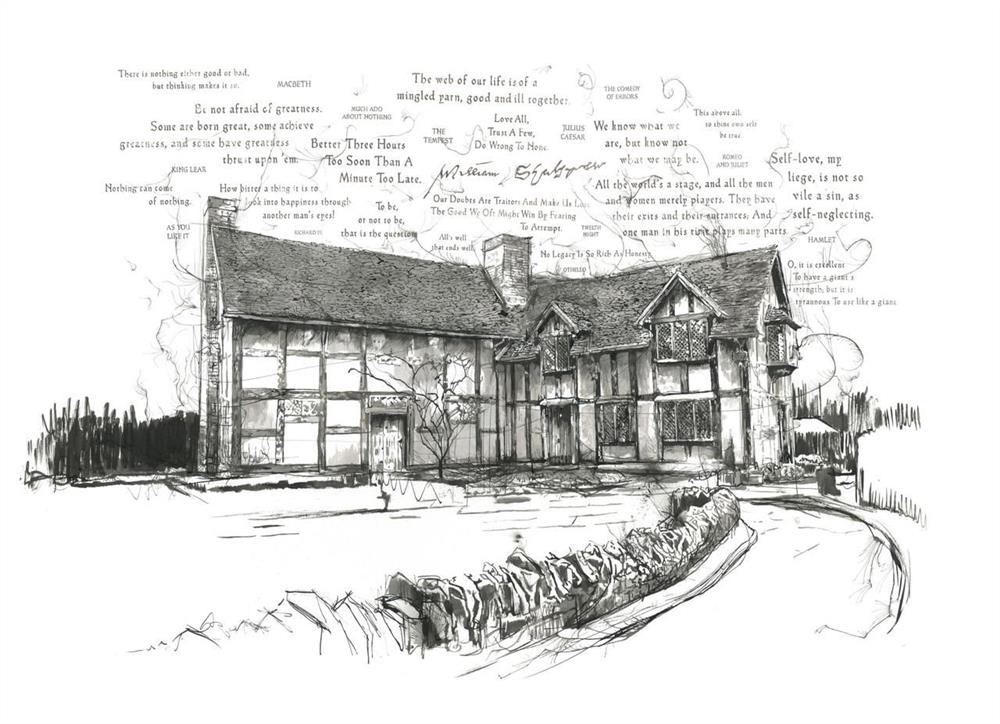 There is nothing either good or bad,
but thinking makes it so.
MACBETH
The web of our life is of a
mingled yarn, good and ill together.
THE COMEDY
OF ERRORS
Be not afraid of greatness.
Some are born great, some achieve
greatness, and some have greatness
thrust upon 'em.
MUCH ADO
ABOUT NOTHING
Better Three Hours
Too Soon Than A
Minute Too Late.
THE
TEMPEST
Love All,
Trust A Few,
Do Wrong To None.
JULIUS
CAESAR
We know what we
are, but know not
what we may be.
This above all:
to thine own self
be true.
ROMEO
AND JULIET
Self-love, my
liege, is not so
vile a sin, as
self-neglecting.
KING LEAR
Nothing can come
of nothing.
How bitter a thing it is to
look into happiness through
another man's eyes!
William
All the world's a stage, and all the men
and women merely players. They have
their exits and their entrances; And
one man in his time plays many parts
Our Doubts Are Traitors And Make Us Lose
The Good We Oft Might Win By Fearing
To Attempt.
To be,
or not to be,
that is the question
AS YOU
LIKE IT
RICHARD III
All's well
that ends well
TWELFTH
NIGHT
No Legacy Is So Rich As Honesty
OTHELLO
HAMLET
O, it is excellent
To have a giant's
strength; but it is
tyrannous To use like a giant.